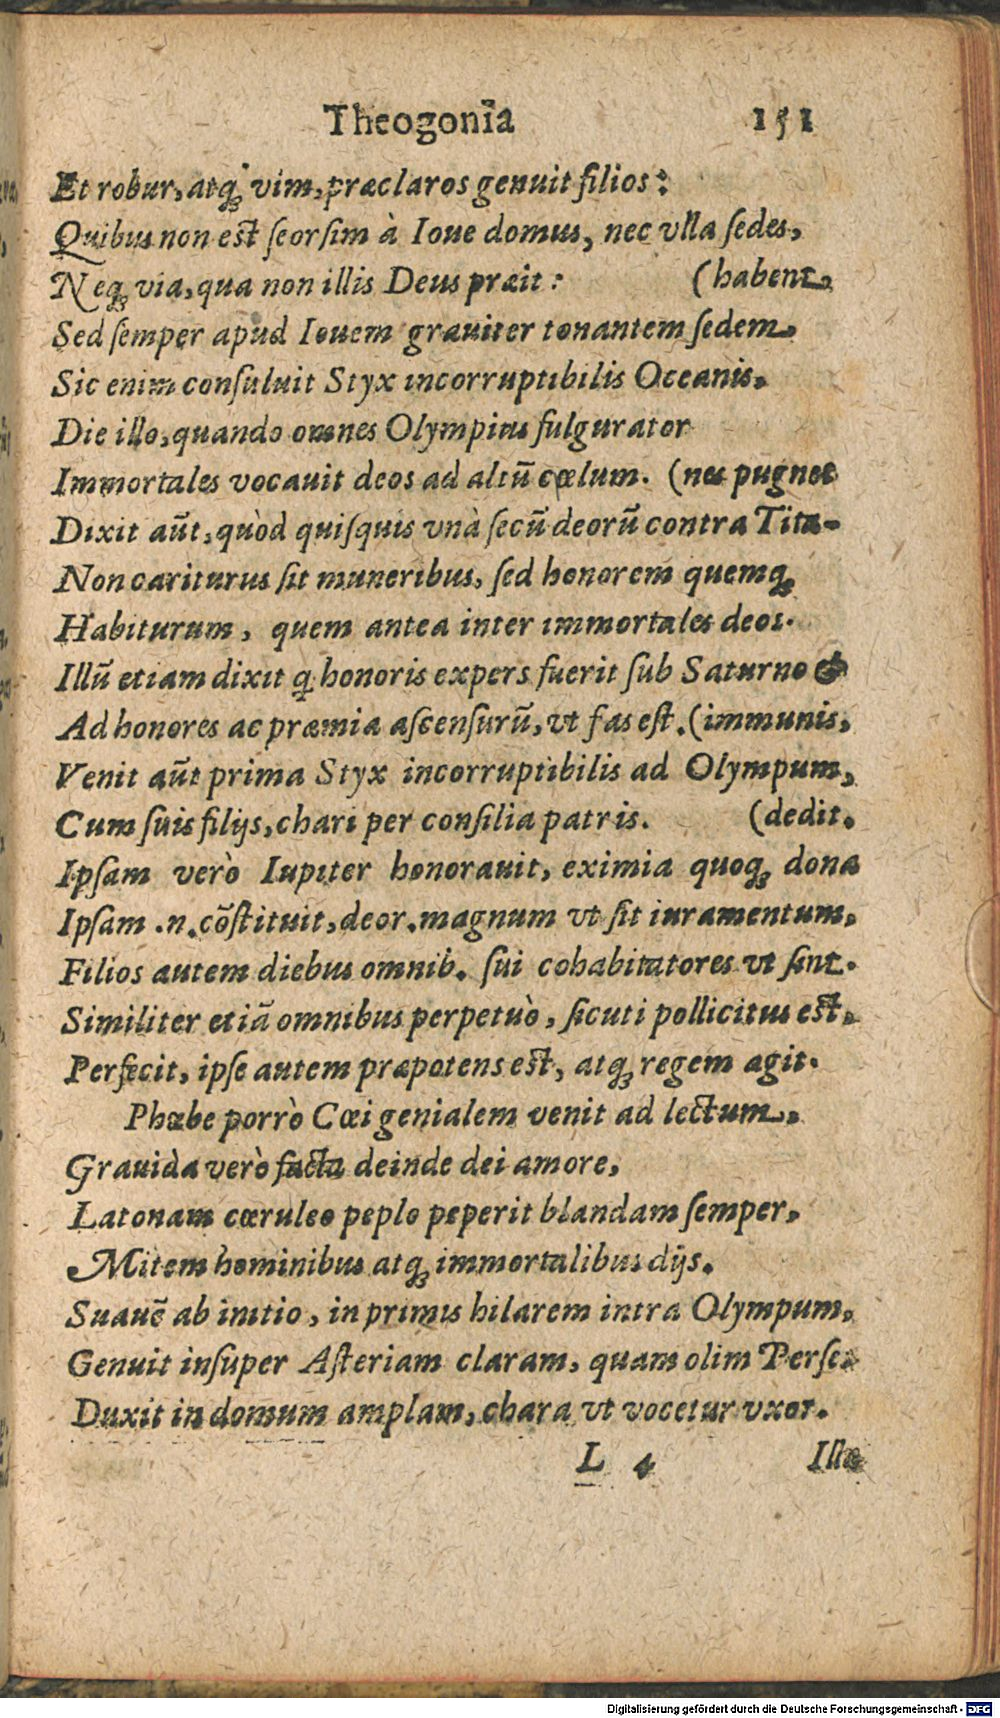 Theogonia 151
Et robur, atq; vim, præclaros genuit filios:
Quibus non est seorsim à Ioue domus, nec vlla sedes,
Neq; via, qua non illis Deus præit: (habent.
Sed semper apud Iouem grauiter tonantem sedem
Sic enim consuluit Styx incorruptibilis Oceanis,
Die illo, quando omnes Olympius fulgurator
Immortales vocauit deos ad altũ cœlum. (nes pugnet
Dixit aũt, quòd quisquis vnà secũ deorũ contra Tita-
Non cariturus sit muneribus, sed honorem quemq;
Habiturum, quem antea inter immortales deos.
Illũ etiam dixit q honoris expers fuerit sub Saturno &
Ad honores ac præmia ascensurũ, vt fas est. (immunis,
Venit aũt prima Styx incorruptibilis ad Olympum,
Cum suis filijs, chari per consilia patris. (dedit.
Ipsam verò Iupiter honorauit, eximia quoq; dona
Ipsam .n. cõstituit, deor. magnum vt sit iuramentum,
Filios autem diebus omnib. sui cohabitatores vt sint.
Similiter etiã omnibus perpetuò, sicuti pollicitus est,
Perfecit, ipse autem præpotens est, atq; regem agit.
Phœbe porrò Cœi genialem venit ad lectum,
Grauida verò facta deinde dei amore,
Latonam cœruleo peplo peperit blandam semper,
Mitem hominibus atq; immortalibus dijs.
Suauẽ ab initio, in primis hilarem intra Olympum,
Genuit insuper Asteriam claram, quam olim Perses
Duxit in domum amplam, chara vt vocetur vxor.
L 4 Illa
Digitalisierung gefördert durch die Deutsche Forschungsgemeinschaft - DFG